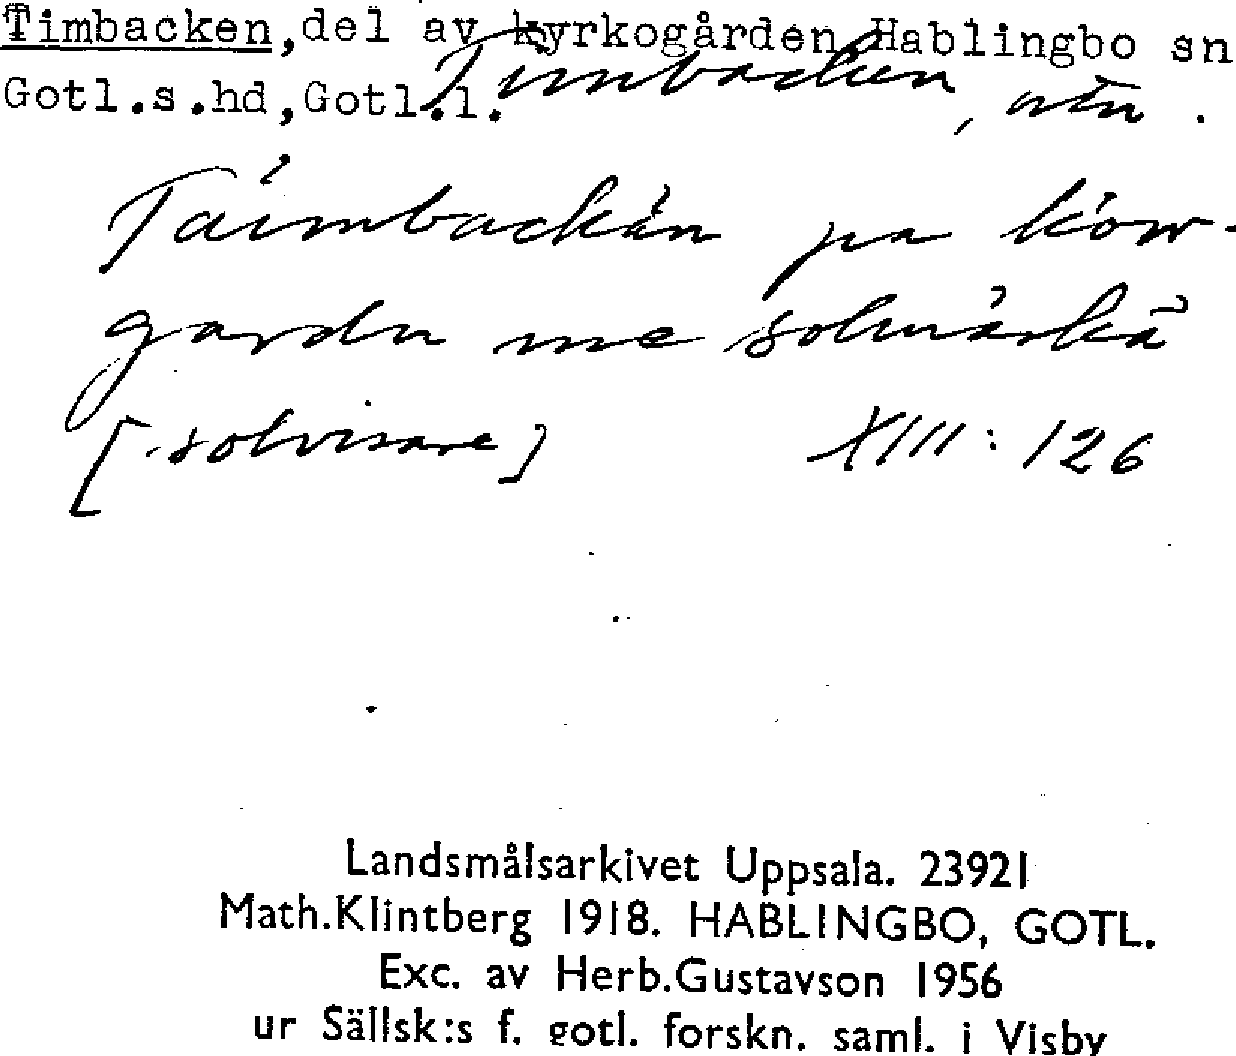 Timbacken,del av kyrkogården,Hablingbo sn
Gotl.s.hd,Gotl.l.
Timbacken, ntn.
Taimbackän pa kiow-
gardn me solmärkä
[solvisare] XIII:126
Landsmålsarkivet Uppsala. 23921
Math.Klintberg 1918. HABLINGBO, GOTL.
Exc. av Herb.Gustavson 1956
ur Sällsk:s f. gotl. forskn. saml. i Visby